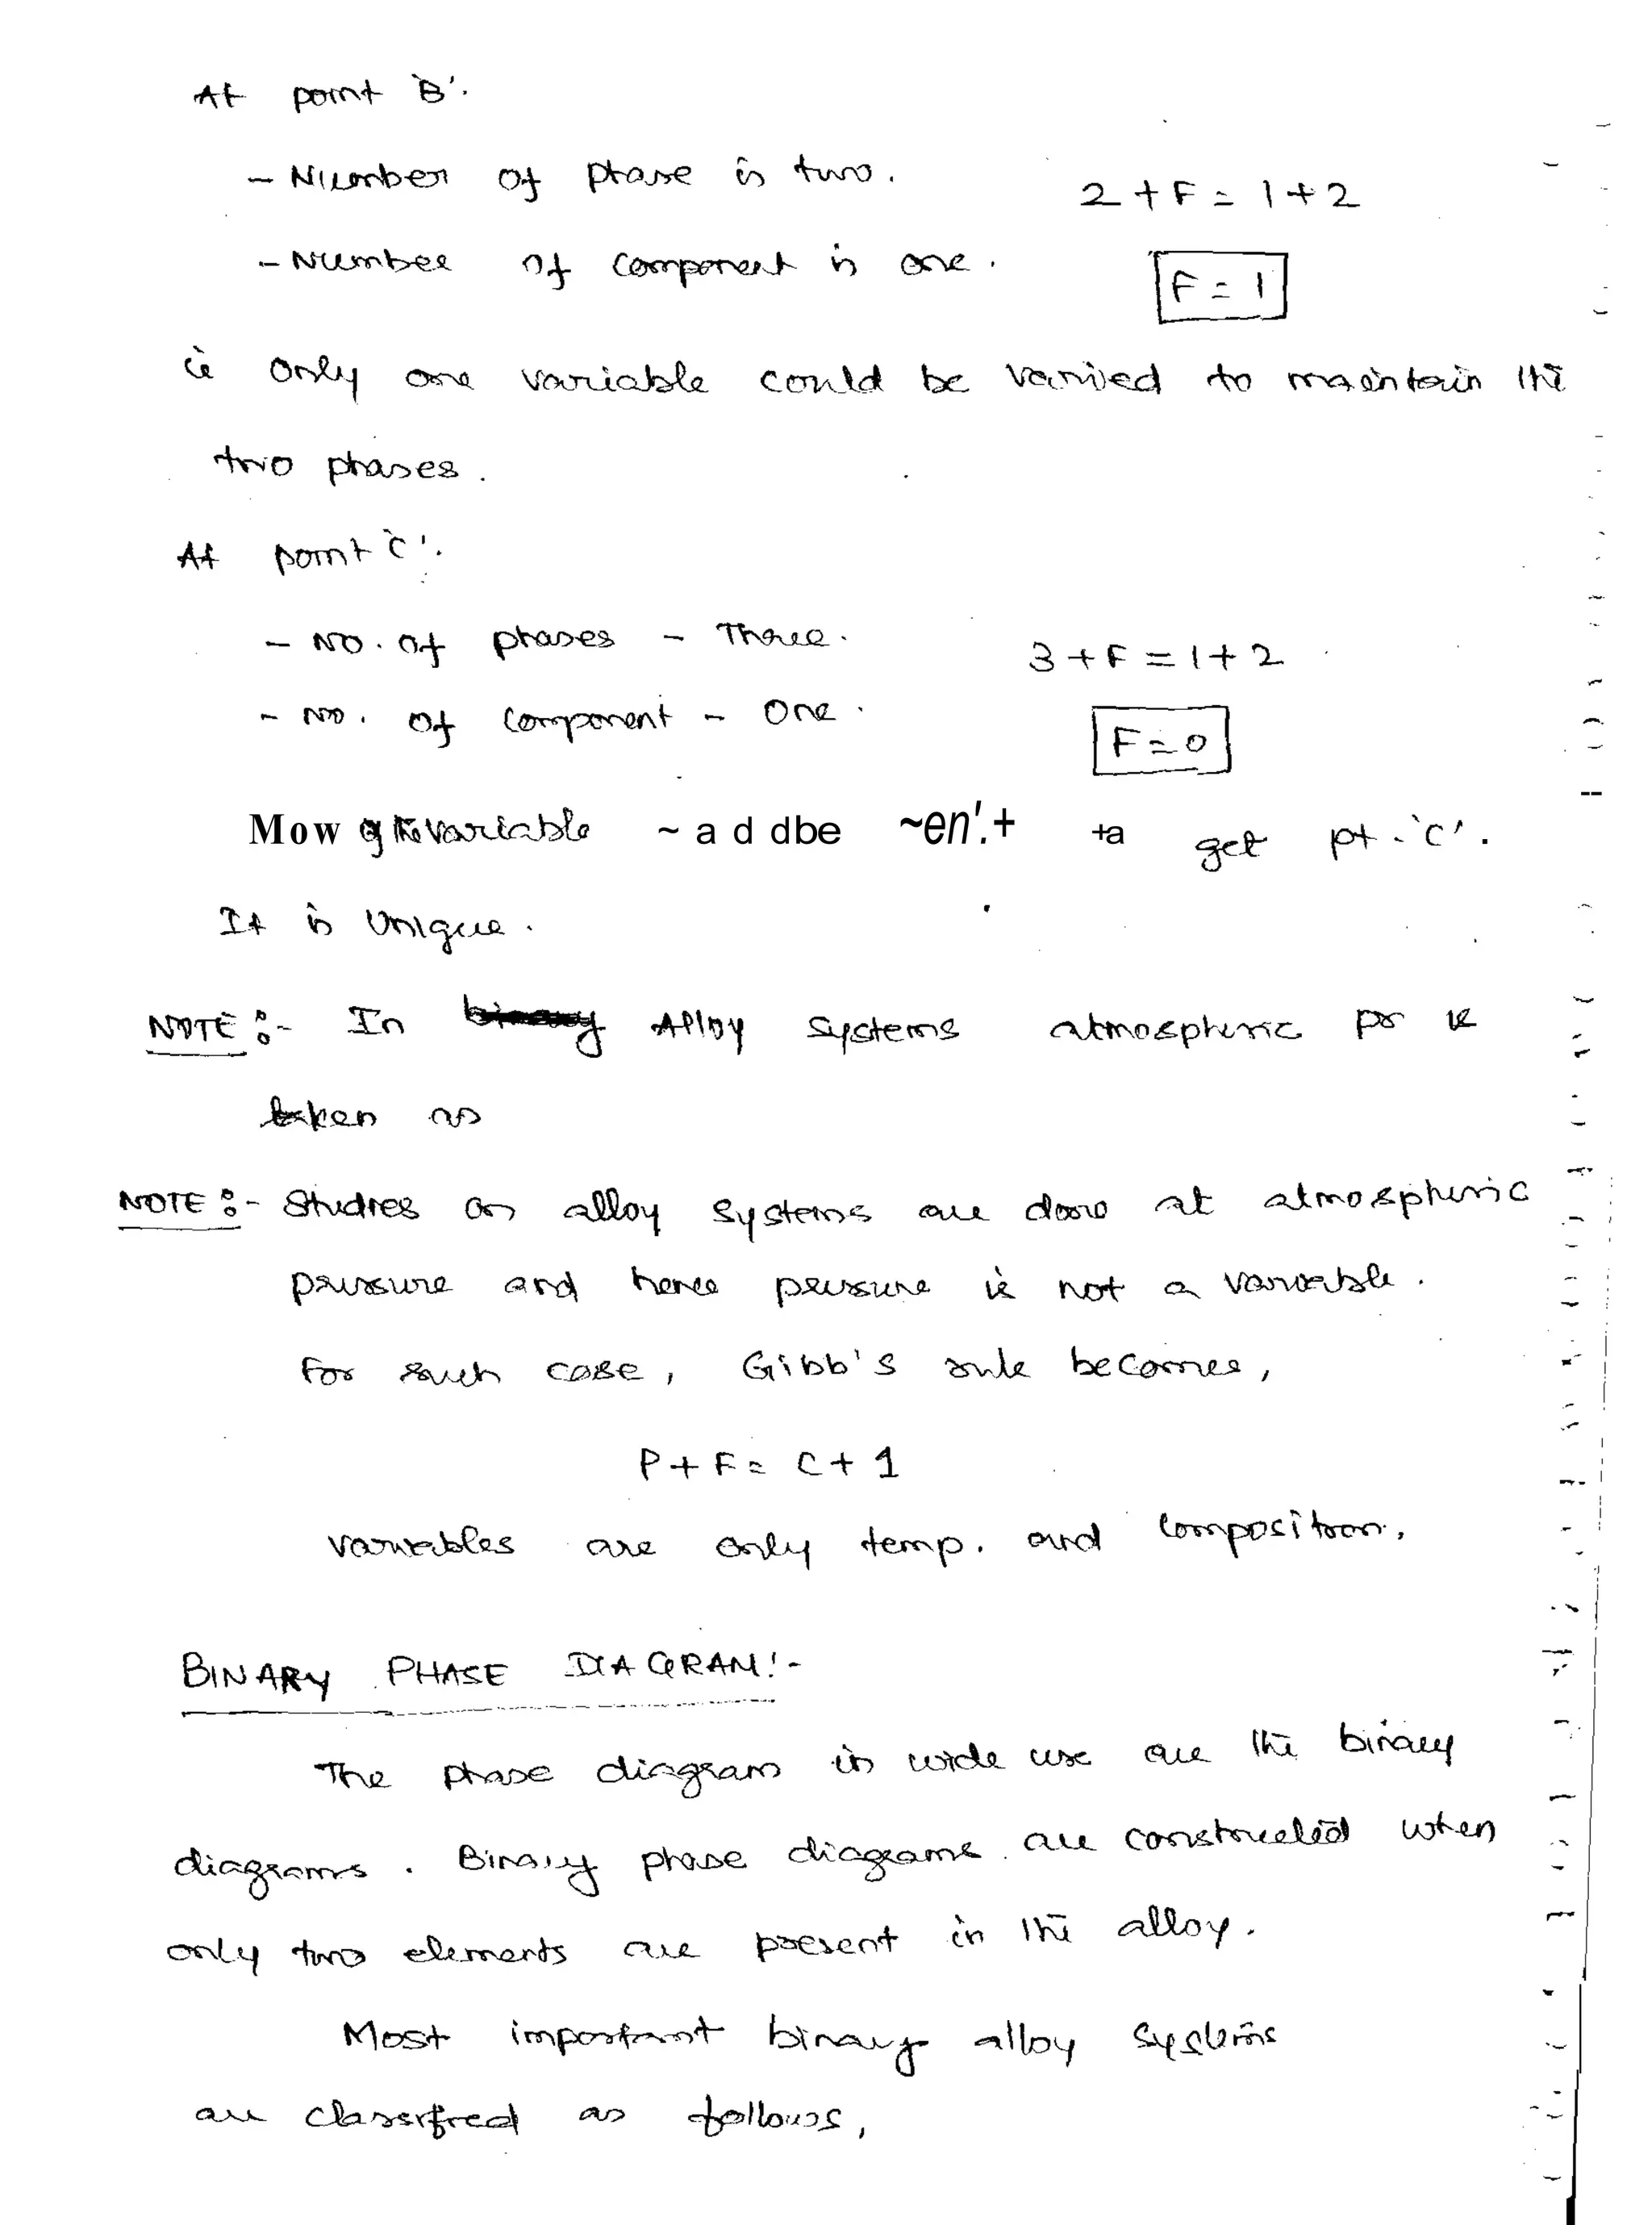 At point 'B'.
- Number of phase is two.
2 + F = 1 + 2
- Number of component is one.
F = 1
ie only one variable could be varied to maintain the
two phases.
At point 'C'.
- No. of phases - Three.
3 + F = 1 + 2
- No. of component - One.
F = 0
Mow of the variable ~ a d dbe ~en'.+ +a get pt. 'C'.
It is Unique.
NOTE :- In binary Alloy Systems atmospheric pr is
taken as
NOTE :- Studies on alloy systems are done at atmospheric
pressure and hence pressure is not a variable.
For such case, Gibb's rule becomes,
P + F = C + 1
Variables are only temp. and composition.
BINARY PHASE DIAGRAM :-
The phase diagram in wide use are the binary
diagrams. Binary phase diagrams are constructed when
only two elements are present in the alloy.
Most important binary alloy systems
are classified as follows,